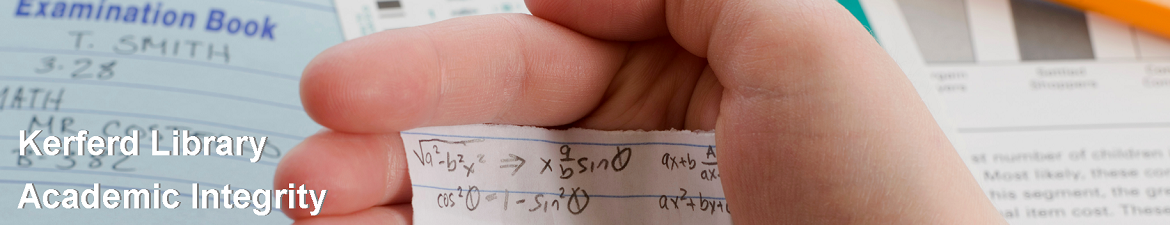 Examination Book
T. SMITH
3.28
MATH
MR. COS
B-382
Kerferd Library
Academic Integrity
√a²-b²x² ⇒ x a/b sin θ ax+b A/ax
cos²θ = 1 - sin²θ ax²+bx+c
Shoppers
st number of children
Most likely, these co
his segment, the gr
al item cost. These